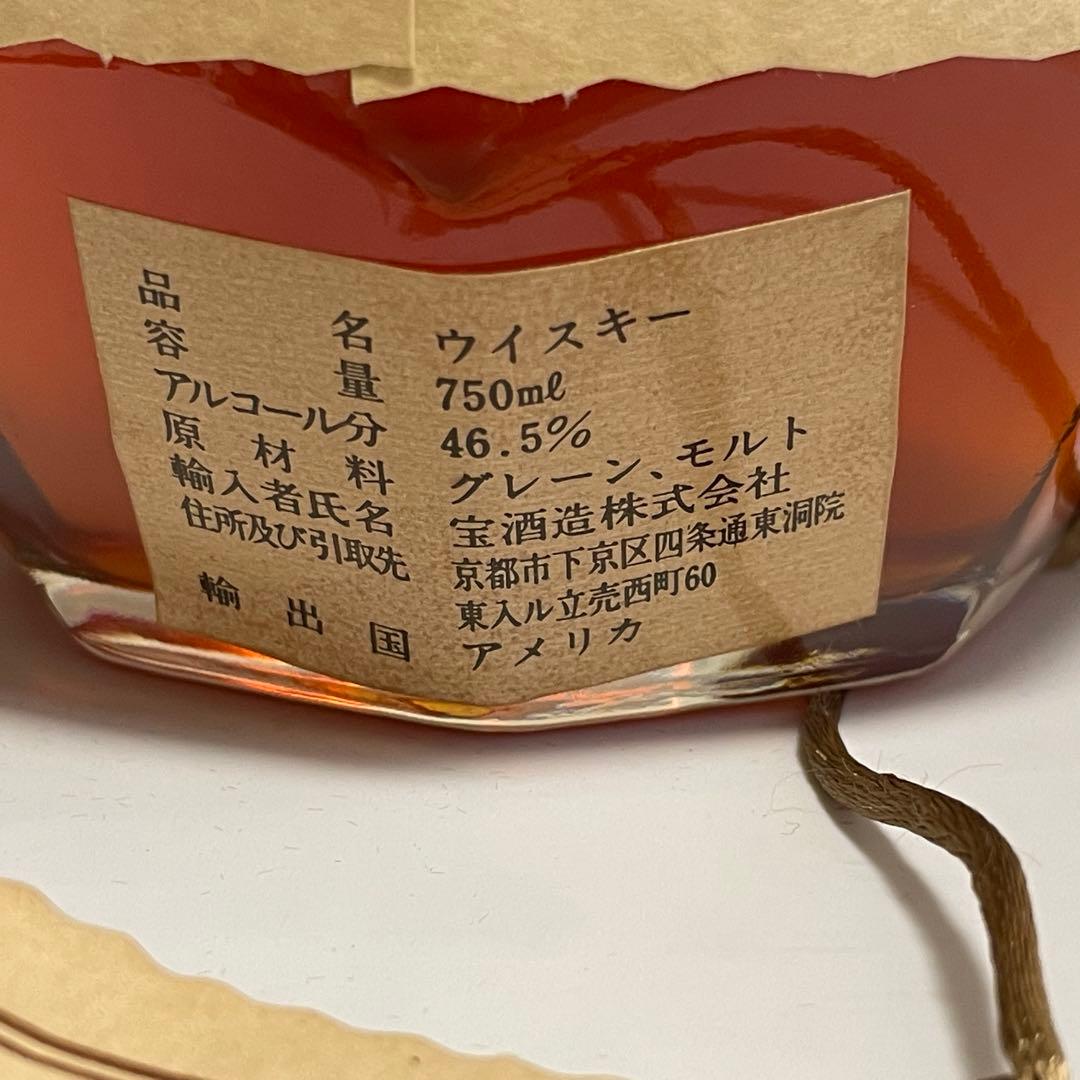 品名 ウイスキー
容量 750㎖
アルコール分 46.5%
原材料 グレーン、モルト
輸入者氏名 宝酒造株式会社
住所及び引取先 京都市下京区四条通東洞院
東入ル立売西町60
輸出国 アメリカ